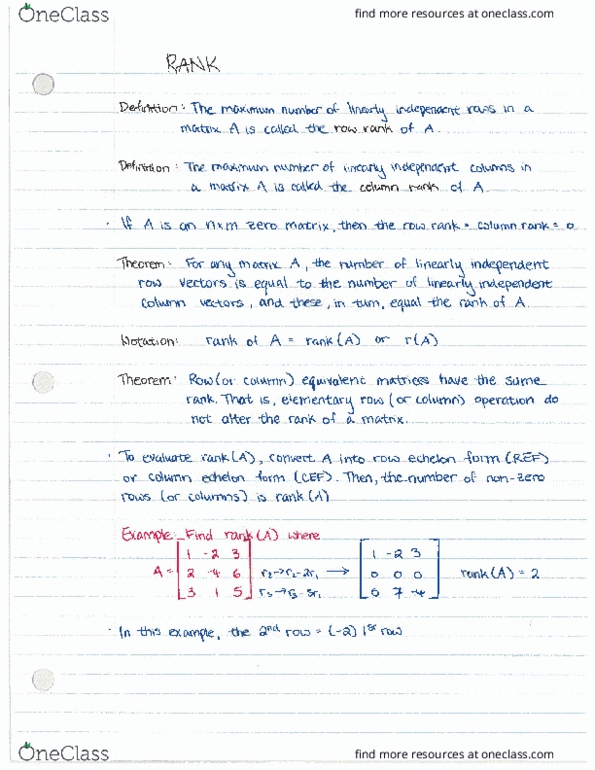 OneClass
find more resources at oneclass.com
RANK
Definition: The maximum number of linearly independent rows in a
matrix A is called the row rank of A.
Definition: The maximum number of linearly independent columns in
a matrix A is called the column rank of A
· If A is an n×m zero matrix, then the row rank = column rank = 0
Theorem: For any matrix A, the number of linearly independent
row vectors is equal to the number of linearly independent
column vectors, and these, in turn, equal the rank of A.
Notation: rank of A = rank(A) or r(A)
Theorem: Row (or column) equivalent matrices have the same
rank. That is, elementary row (or column) operation do
not alter the rank of a matrix.
· To evaluate rank(A), convert A into row echelon form (REF)
or column echelon form (CEF). Then, the number of non-zero
rows (or columns) is rank(A)
Example: Find rank(A) where
1 -2 3 1 -2 3
A = 2 -4 6 r₂→r₂-2r₁ → 0 0 0 rank(A) = 2
3 1 5 r₃→r₃-3r₁ 0 7 -4
· In this example, the 2nd row = (-2) 1st row
OneClass
find more resources at oneclass.com